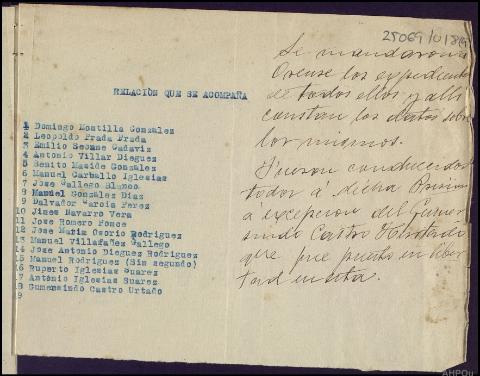 25069/01819
RELACIÓN QUE SE ACOMPAÑA
1 Domingo Montilla Gonzalez
2 Leopoldo Prada Prada
3 Emilio Seoane Cadaviz
4 Antonio Villar Dieguez
5 Benito Maside Gonzalez
6 Manuel Carballo Iglesias
7 Jose Gallego Blanco
8 Manuel Gonzalez Diaz
9 Salvador Garcia Perez
10 Jimes Navarro Vera
11 Jose Romero Ponce
12 Jose Maria Osorio Rodriguez
13 Manuel Villafañez Gallego
14 Jose Antonio Dieguez Rodriguez
15 Manuel Rodriguez (Sin segundo)
16 Ruperto Iglesias Suarez
17 Antonio Iglesias Suarez
18 Gumensindo Castro Urtado
19
Se mandaron a
Orense los expedientes
de todos ellos y alli
constan los datos sobre
los mismos.
Fueron conducidos
todos á dicha Prision
á excepcion del Gumer
sindo Castro Hurtado
que fue puesto en liber
tad en esta.
AHPOu